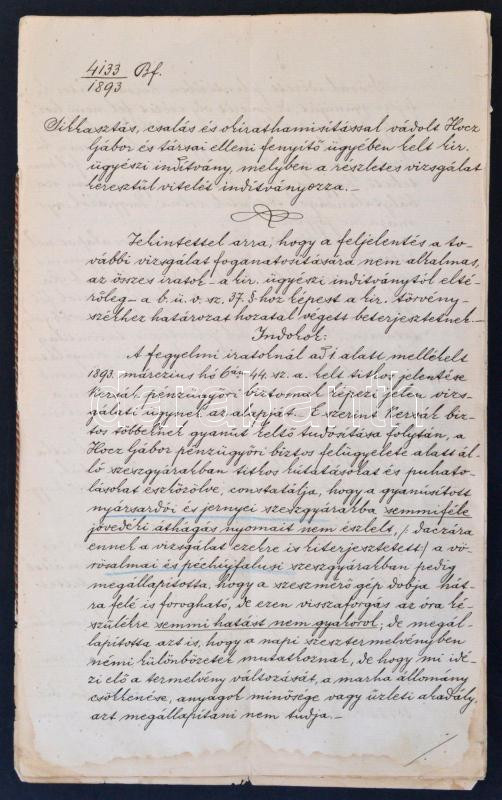 4133 Bf.
1893
Sikkasztás, csalás és okirathamisítással vádolt Hocz
Gábor és társai elleni fenyítő ügyében kelt kir.
ügyészi indítvány, melyben a részletes vizsgálat
keresztül vitelét indítványozza.-
Tekintettel arra, hogy a feljelentés a to-
vábbi vizsgálat foganatosítására nem alkalmas,
az összes iratok - a kir. ügyészi indítványtól elté-
rőleg - a b. ü. v. sz. 37. §-hoz képest a kir. törvény-
székhez határozat hozatal végett beterjesztetnek.-
Indokok:
A fegyelmi iratoknál ad 1 alatt mellékelt
1893. márczius hó 6án 44. sz. a. kelt titkos jelentése
Kersák pénzügyőri biztosnak képezi jelen vizs-
gálati ügynek az alapját. - E szerint Kersák biz-
tos többeknek gyanút keltő tudósítása folytán, a
Hocz Gábor pénzügyőri biztos felügyelete alatt ál-
ló szeszgyárakban titkos kutatásokat és puhato-
lásokat eszközölve, constatálja, hogy a gyanúsított
nyársardói és jernyei szeszgyárakba semmiféle
jövedéki áthágás nyomait nem észlelt, /: daczára
ennek a vizsgálat ezekre is kiterjesztetett:/ a vö-
rösalmai és péchújfalusi szeszgyárakban pedig
megállapította, hogy a szeszmérő gép dobja hát-
ra felé is forogható, de ezen visszaforgás az óra ké-
szülékre semmi hatást nem gyakorol; de megál-
lapította azt is, hogy a napi szesztermelvényben
némi különbözetek mutatkoznak, de hogy mi idé-
zi elő a termelvény változását, a marha állomány
csökkenése, anyagok minősége vagy üzleti akadály,
azt megállapítani nem tudja.-
darabanth